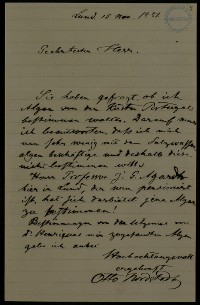 Lund, 15 Nov. 1881.
Geehrtester Herr.
Sie haben gefragt ob ich
Algen von den Küsten Portugals
bestimmen wolle. Darauf muss
ich beantworten, dass ich mich
nur sehr wenig mit den Salzwasser-
algen beschäftige und deshalb dies
nicht bestimmen will.
Herr Professor J. G. Agardh
hier in Lund, der nun pensioniert
ist, hat sich
zu bestimmen!
Bestimmungen von den
Dr. Henriques mir zugesandten Algen
gebe ich anbei.
Hochachtungsvoll
ergebenst
Otto Nordstedt